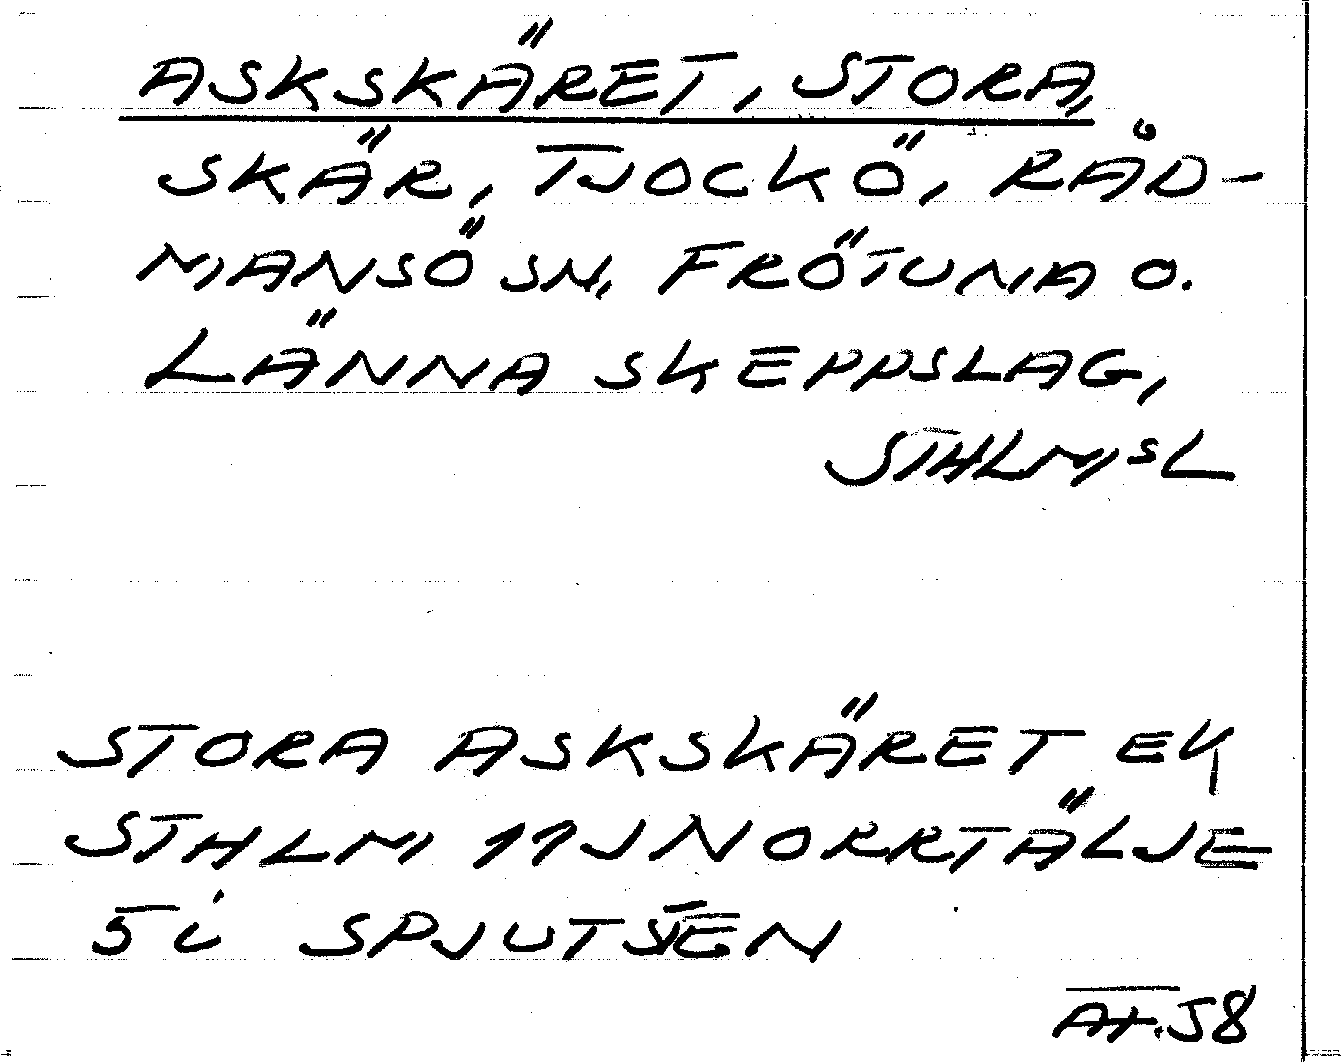 ASKSKÄRET, STORA,
SKÄR, TJOCKÖ, RÅD-
MANSÖ SN, FRÖTUNA O.
LÄNNA SKEPPSLAG,
STHLMSL
STORA ASKSKÄRET EK
STHLM 11J NORRTÄLJE
5i SPJUTSTEN
58